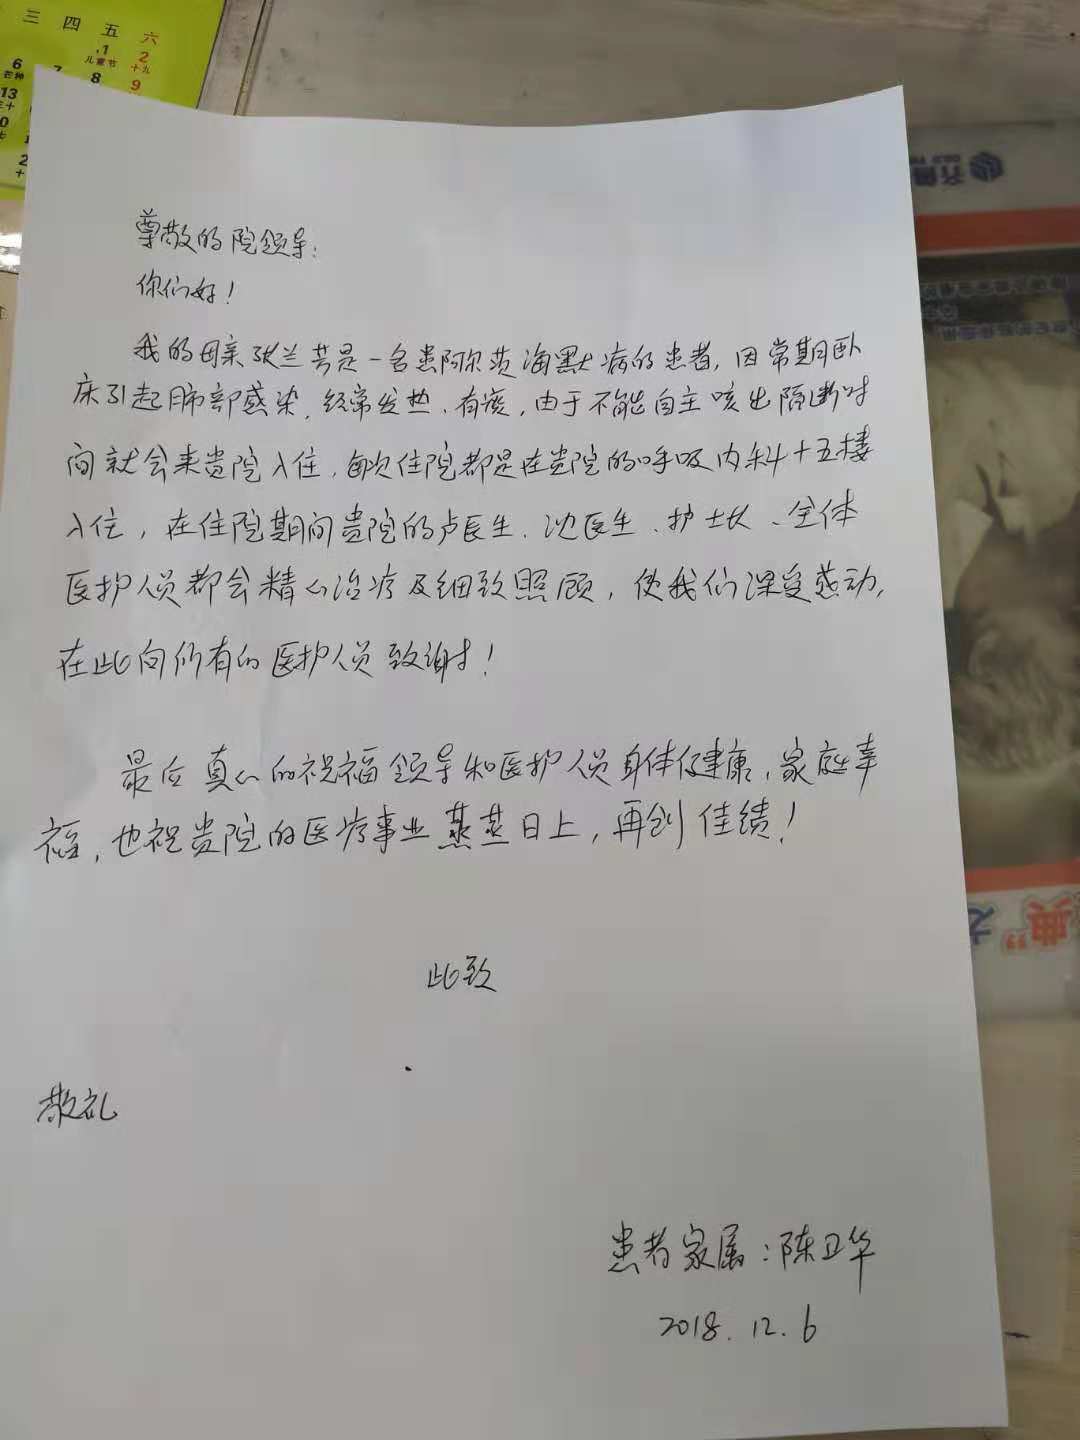 三 四 五 六
1 2
儿童节 十九
6 7 8 9
芒种
13
尊敬的院领导:
你们好!
我的母亲张兰芳是一名患阿尔茨海默病的患者,因常期卧
床引起肺部感染,经常发热、有痰,由于不能自主咳出隔断时
间就会来贵院入住,每次住院都是在贵院的呼吸内科十五楼
入住,在住院期间贵院的卢医生、沈医生、护士长、全体
医护人员都会精心治疗及细致照顾,使我们深受感动,
在此向所有的医护人员致谢!
最后真心的祝福领导和医护人员身体健康,家庭幸
福,也祝贵院的医疗事业蒸蒸日上,再创佳绩!
此致
敬礼
患者家属:陈卫华
2018.12.6
齐鲁
典”之